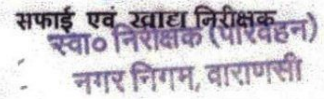 सफाई एवं खाद्य निरीक्षक
स्वा० निरीक्षक (परिवहन)
नगर निगम, वाराणसी